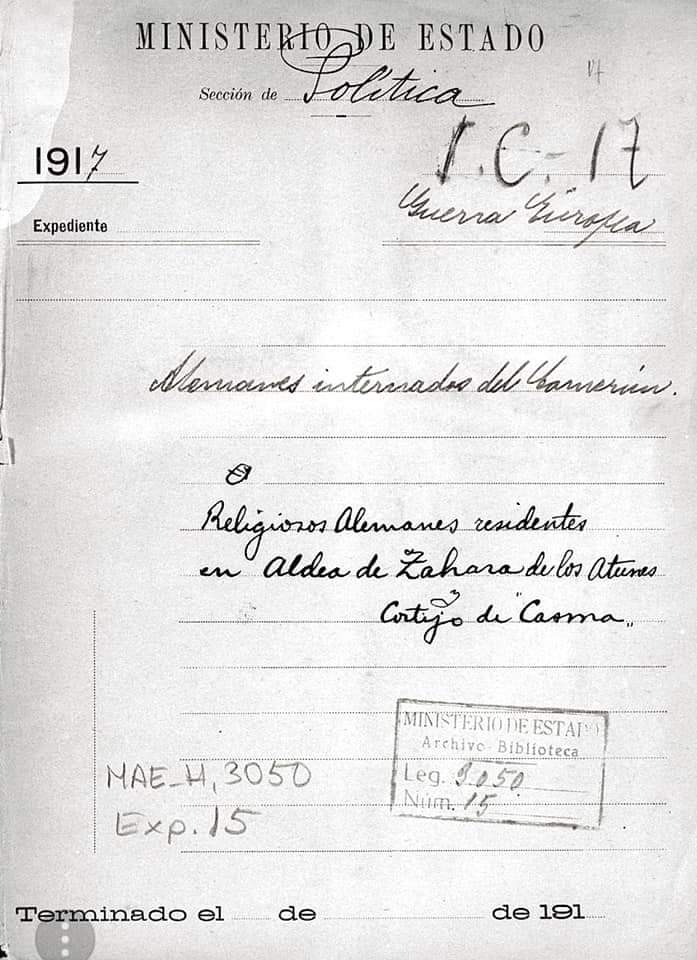 MINISTERIO DE ESTADO
Sección de Política
1917
I.C.-17
Guerra Europea
Expediente
Alemanes internados del Camerún.
Religiosos Alemanes residentes
en Aldea de Zahara de los Atunes
Cortijo de "Casma"
MINISTERIO DE ESTADO
Archivo-Biblioteca
Leg. 3050
Núm. 15
MAE-H, 3050
Exp. 15
Terminado el de de 191